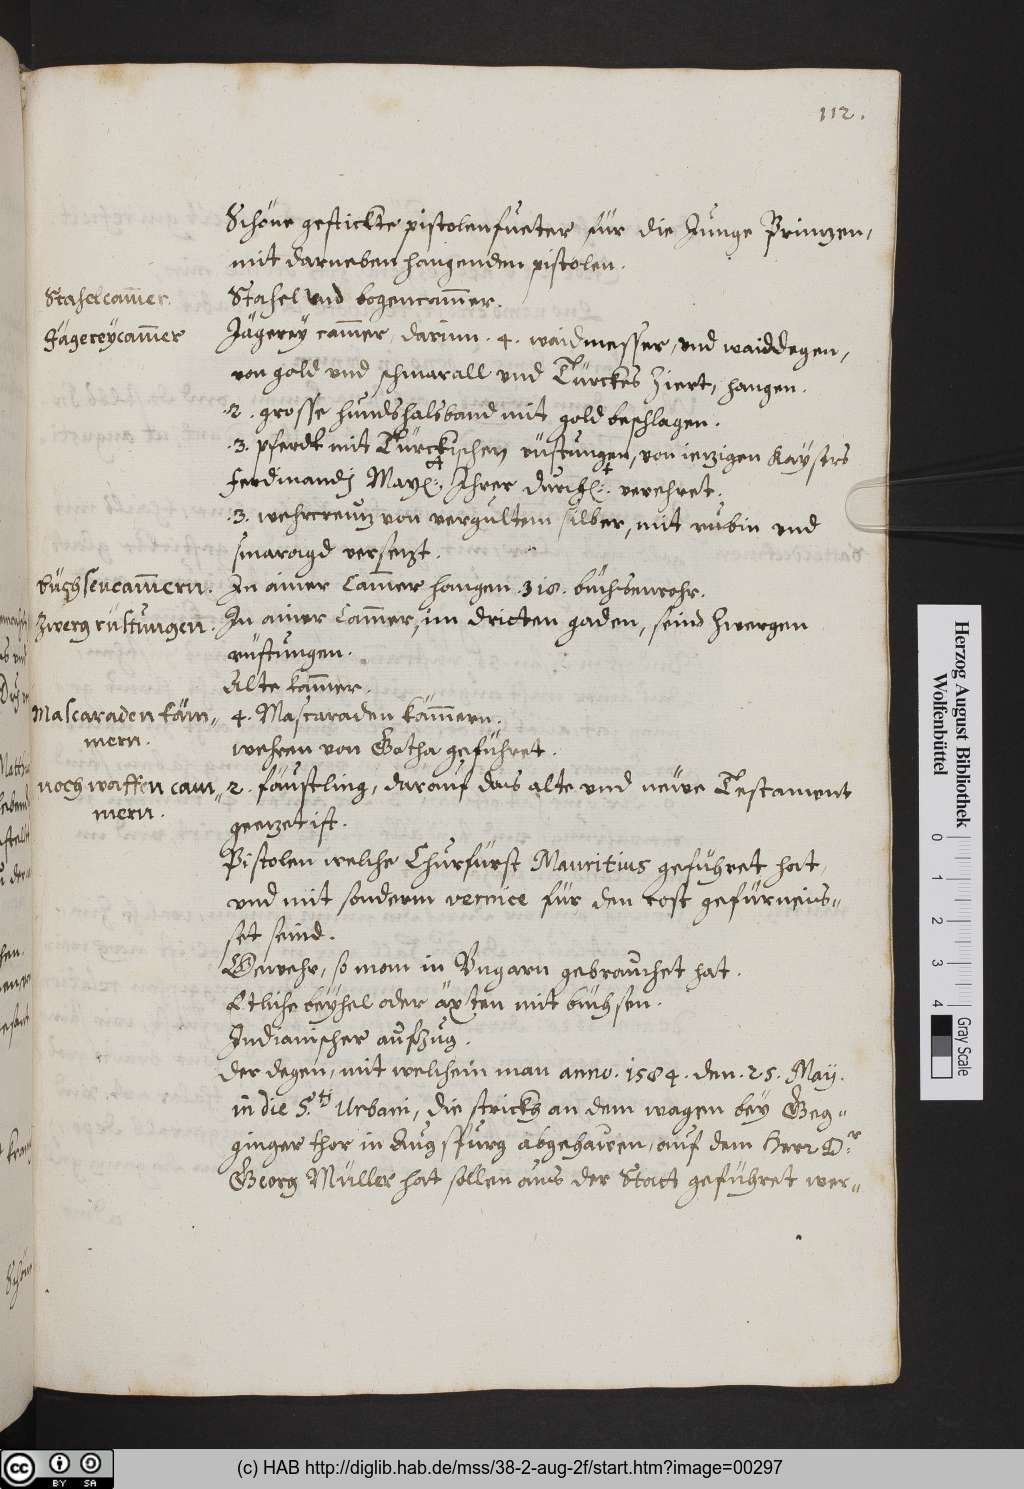 112.
Schöne gestickte pistolenfueter für die Junge Printzen,
mit darneben hangenden pistolen.
Stahelcam̄er. Stahel und bogencam̄er.
Jägereycam̄er Jägerey cam̄er, darinn .4. waidmesser, und waiddegen,
von gold und schmarall und Türckes ziert, hangen.
.2. grosse hundshalsband mit gold beschlagen.
.3. pferdt mit Türckischen rüstungen, von ietzigen Kaysers
Ferdinandj May: Ihrer Durchl: verehret.
.3. wehrcreutz von vergultem silber, mit rubin und
smaragd versetzt.
büchsencam̄ern. In ainer Cam̄er hangen .318. büchsenrohr.
Zwerg rüstungen. In ainer Cam̄er, im dritten gaden, seind Zwergen
rüstungen.
Alte kam̄er.
Mascaraden käm„ 4. Mascaraden käm̄ern.
mern.
wehren von Gotha geführet.
noch waffen cam„ 2. fäustling, darauf das alte und neüwe Testament
mern. geetzet ist.
Pistolen welche Churfürst Mauritius geführet hat,
und mit sonderm vernice für den rost gefürneüs„
set seind.
Gewehr, so man in Ungarn gebrauchet hat.
Etliche beyhel oder äxten mit büchsen.
Indianischer aufzug.
Der degen, mit welchem man anno. 1584. den .25. May.
in die S.ti Urbani, die strickh an dem wagen bey Geg„
ginger thor in Augspurg abgehauen, auf dem Herr D.r
Georg Müller hat sollen aus der Statt geführet wer„
Herzog August Bibliothek
Wolfenbüttel
0 1 2 3 4
Gray Scale
CC BY SA
(c) HAB http://diglib.hab.de/mss/38-2-aug-2f/start.htm?image=00297